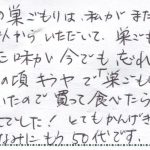 の巣ごもりは、私がまだ
さんからいただいて、巣ごも
た味が今でも忘れ
の頃キヨヤで巣ごも
いたので買って食べたら
てでした! とてもかんげき
なみにもう50代です。